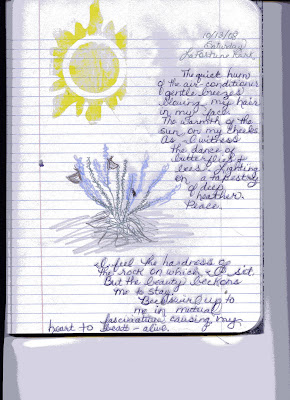 10/18/08
Saturday
LaFortune Park
The quick hum
of the air-conditioner
gentle breezes
blowing my hair
in my face.
The warmth of the
sun on my cheeks
As I witness
the dance of
butterflies &
bees lighting
on a tapestry
of deep
heather.
Peace.
I feel the hardness of
the rock on which I sit.
But the beauty beckons
me to stay.
Bees swirl up to
me in mutual
fascination causing my
heart to beat - alive.